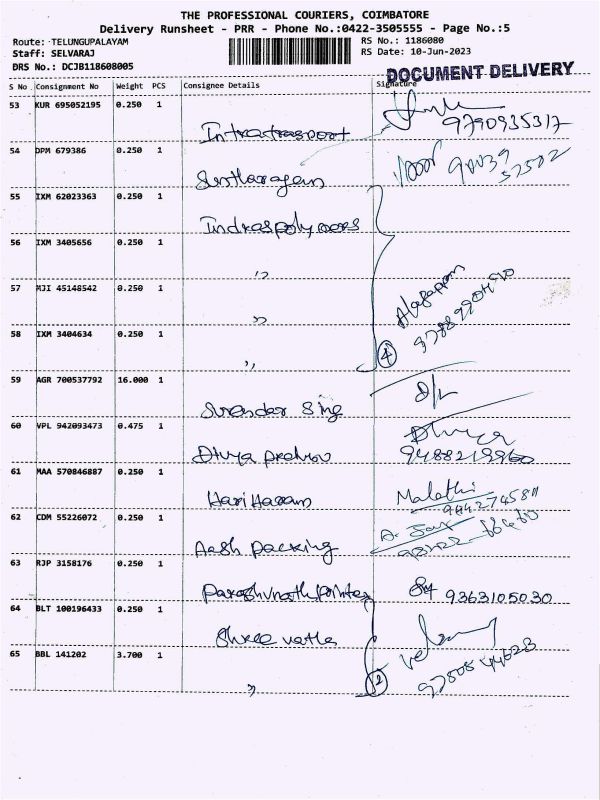 THE PROFESSIONAL COURIERS, COIMBATORE
Delivery Runsheet - PRR - Phone No.:0422-3505555 - Page No.:5
Route: TELUNGUPALAYAM RS No.: 1186080
Staff: SELVARAJ RS Date: 10-Jun-2023
DRS No.: DCJB118608005
DOCUMENT DELIVERY
S No Consignment No Weight PCS Consignee Details Signature
53 KUR 695052195 0.250 1
Intratrasport 9790935317
54 DPM 679386 0.250 1
90039
52502
55 IXM 62023363 0.250 1
Indraspolymers
56 IXM 3405656 0.250 1
"
57 MJI 45148542 0.250 1
" Alagappan
58 IXM 3404634 0.250 1
" 4
59 AGR 700537792 16.000 1
Surender Sing D/L
60 VPL 942093473 0.475 1
Divya Divya
61 MAA 570846887 0.250 1
Hari Haram Malathi
62 CDM 55226072 0.250 1
Aash Packing
63 RJP 3158176 0.250 1
9363105030
64 BLT 100196433 0.250 1
Shree
65 BBL 141202 3.700 1
" 2